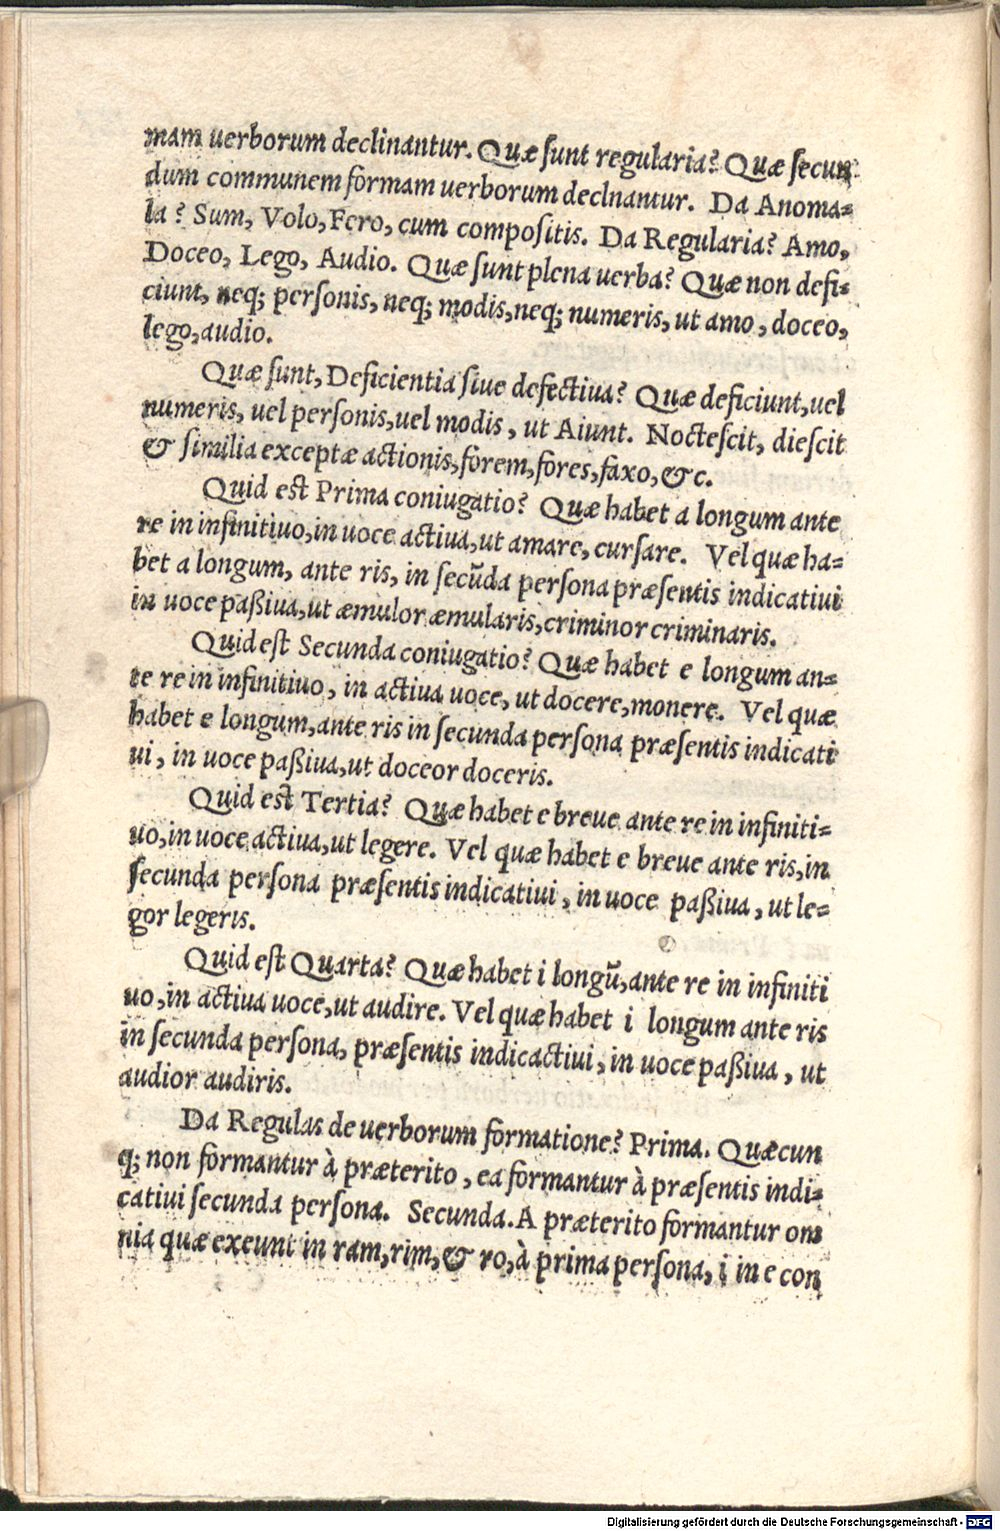 mam uerborum declinantur. Quæ ſunt regularia? Quæ ſecun
dum communem formam uerborum declnantur. Da Anoma⸗
la? Sum, Volo, Fero, cum compoſitis. Da Regularia? Amo,
Doceo, Lego, Audio. Quæ ſunt plena uerba? Quæ non defi⸗
ciunt, neq; perſonis, neq; modis, neq; numeris, ut amo, doceo,
lego, audio.
Quæ ſunt, Deficientia ſiue defectiua? Quæ deficiunt, uel
numeris, uel perſonis, uel modis, ut Aiunt. Nocteſcit, dieſcit
& ſimilia exceptæ actionis, forem, fores, faxo, & c.
Quid eſt Prima coniugatio? Quæ habet a longum ante
re in infinitiuo, in uoce actiua, ut amare, curſare. Vel quæ ha⸗
bet a longum, ante ris, in ſecūda perſona præſentis indicatiui
in uoce paßiua, ut æmulor æmularis, criminor criminaris.
Quid eſt Secunda coniugatio? Quæ habet e longum an⸗
te re in infinitiuo, in actiua uoce, ut docere, monere. Vel quæ
habet e longum, ante ris in ſecunda perſona præſentis indicati
ui, in uoce paßiua, ut doceor doceris.
Quid est Tertia? Quæ habet e breue ante re in infiniti⸗
uo, in uoce actiua, ut legere. Vel quæ habet e breue ante ris, in
ſecunda perſona præſentis indicatiui, in uoce paßiua, ut le⸗
gor legeris.
Quid eſt Quarta? Quæ habet i longū, ante re in infiniti
uo, in actiua uoce, ut audire. Vel quæ habet i longum ante ris
in ſecunda perſona, præſentis indicactiui, in uoce paßiua, ut
audior audiris.
Da Regulas de uerborum formatione? Prima. Quæcun
q; non formantur à præterito, ea formantur à præſentis indi⸗
catiui ſecunda perſona. Secunda. A præterito formantur om
nia quæ exeunt in ram, rim, & ro, à prima perſona, i in e con
Digitalisierung gefördert durch die Deutsche Forschungsgemeinschaft - DFG